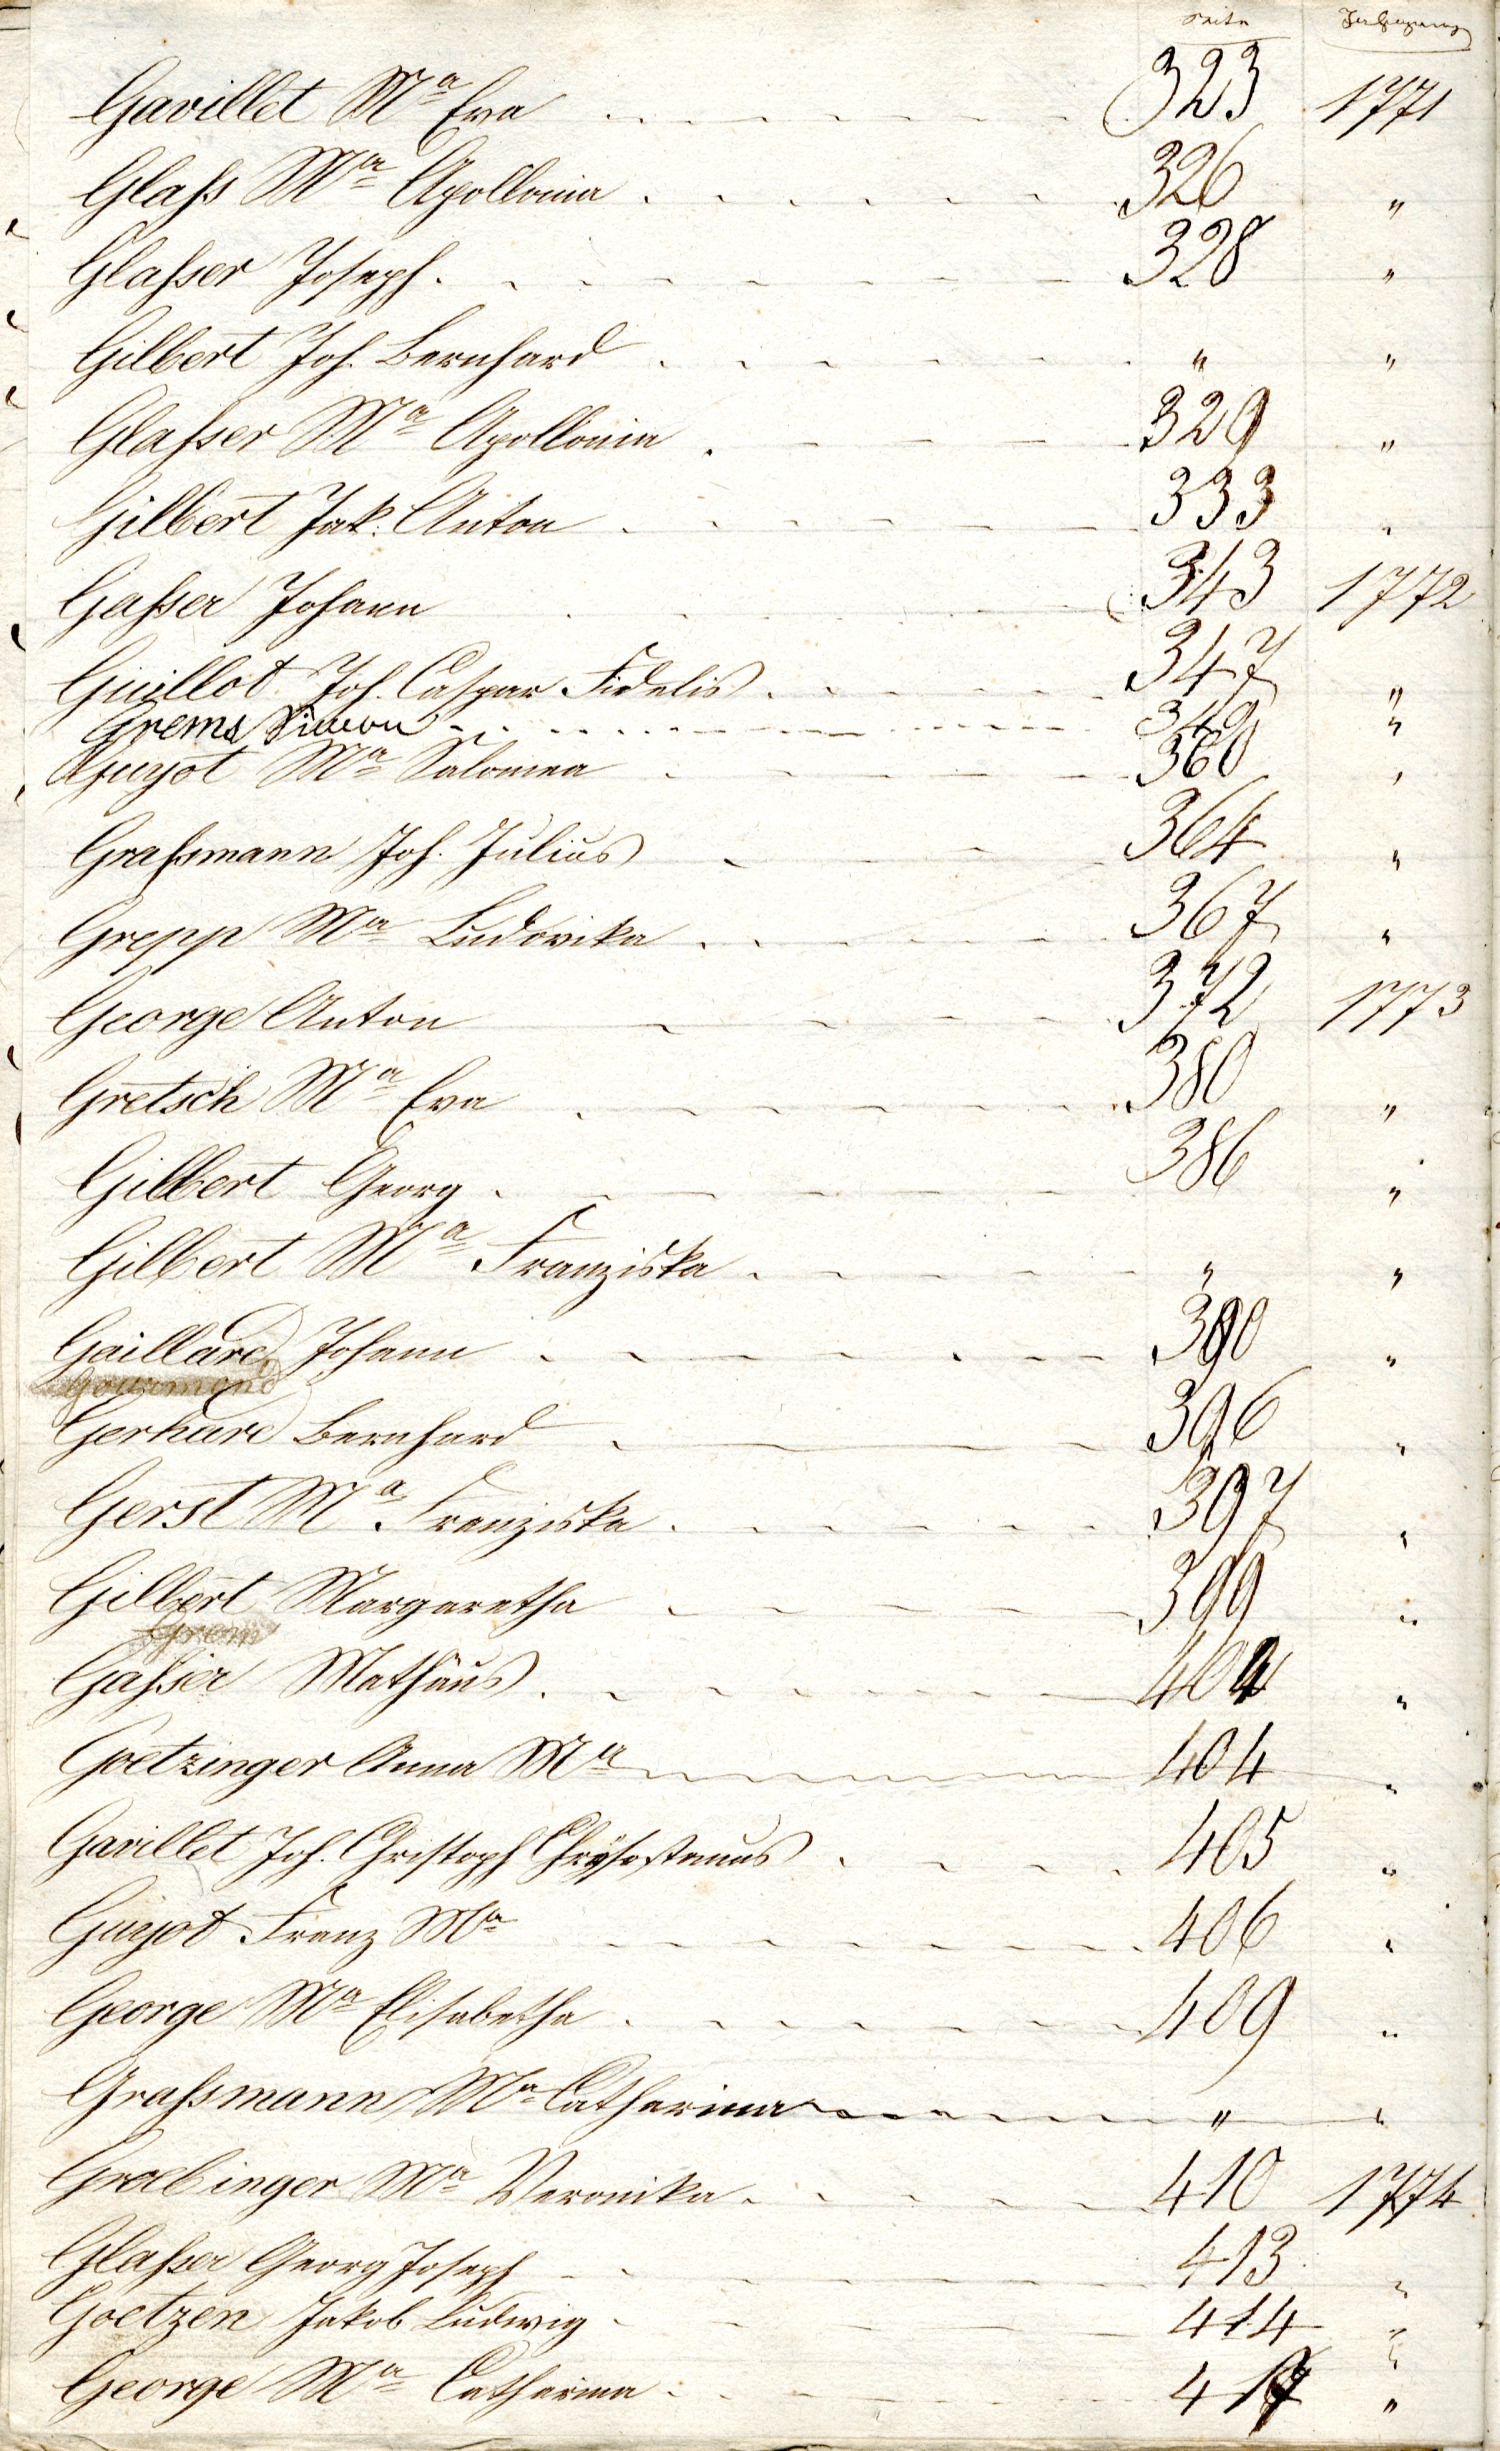 Seite Jahrgang
Gavillet Mª Eva 323 1771
Glaſs Mª Apollonia 326 "
Glaſser Joseph 328 "
Gilbert Joh. Bernhard " "
Glaſser Mª Apollonia 329 "
Gilbert Jak. Anton 333 "
Gaſser Johann 343 1772
Guillot Joh. Caspar Fidelis 347 "
Grems Simon 349 "
Guyot Mª Salomea 360 "
Graſsmann Joh. Julius 364 "
Grepp Mª Ludovika 367 "
George Anton 372 1773
Gretsch Mª Eva 380 "
Gilbert Georg 386 "
Gilbert Mª Franziska " "
Gaillard Johann 390 "
Gourmond
Gerhard Bernhard 396 "
Gerst Mª Franziska 397 "
Gilbert Margaretha 399 "
Grem
Gaſser Mathäus "
Goetzinger Anna Mª 404 "
Gavillet Joh. Christoph Chrÿsostomus 405 "
Guyot Franz Mª 406 "
George Mª Elisabetha 409 "
Graſsmann Mª Catharina " "
Graebinger Mª Veronika 410 1774
Glaſser Georg Joseph 413 "
Goetzen Jakob Ludwig 414 "
George Mª Catharina 417 "